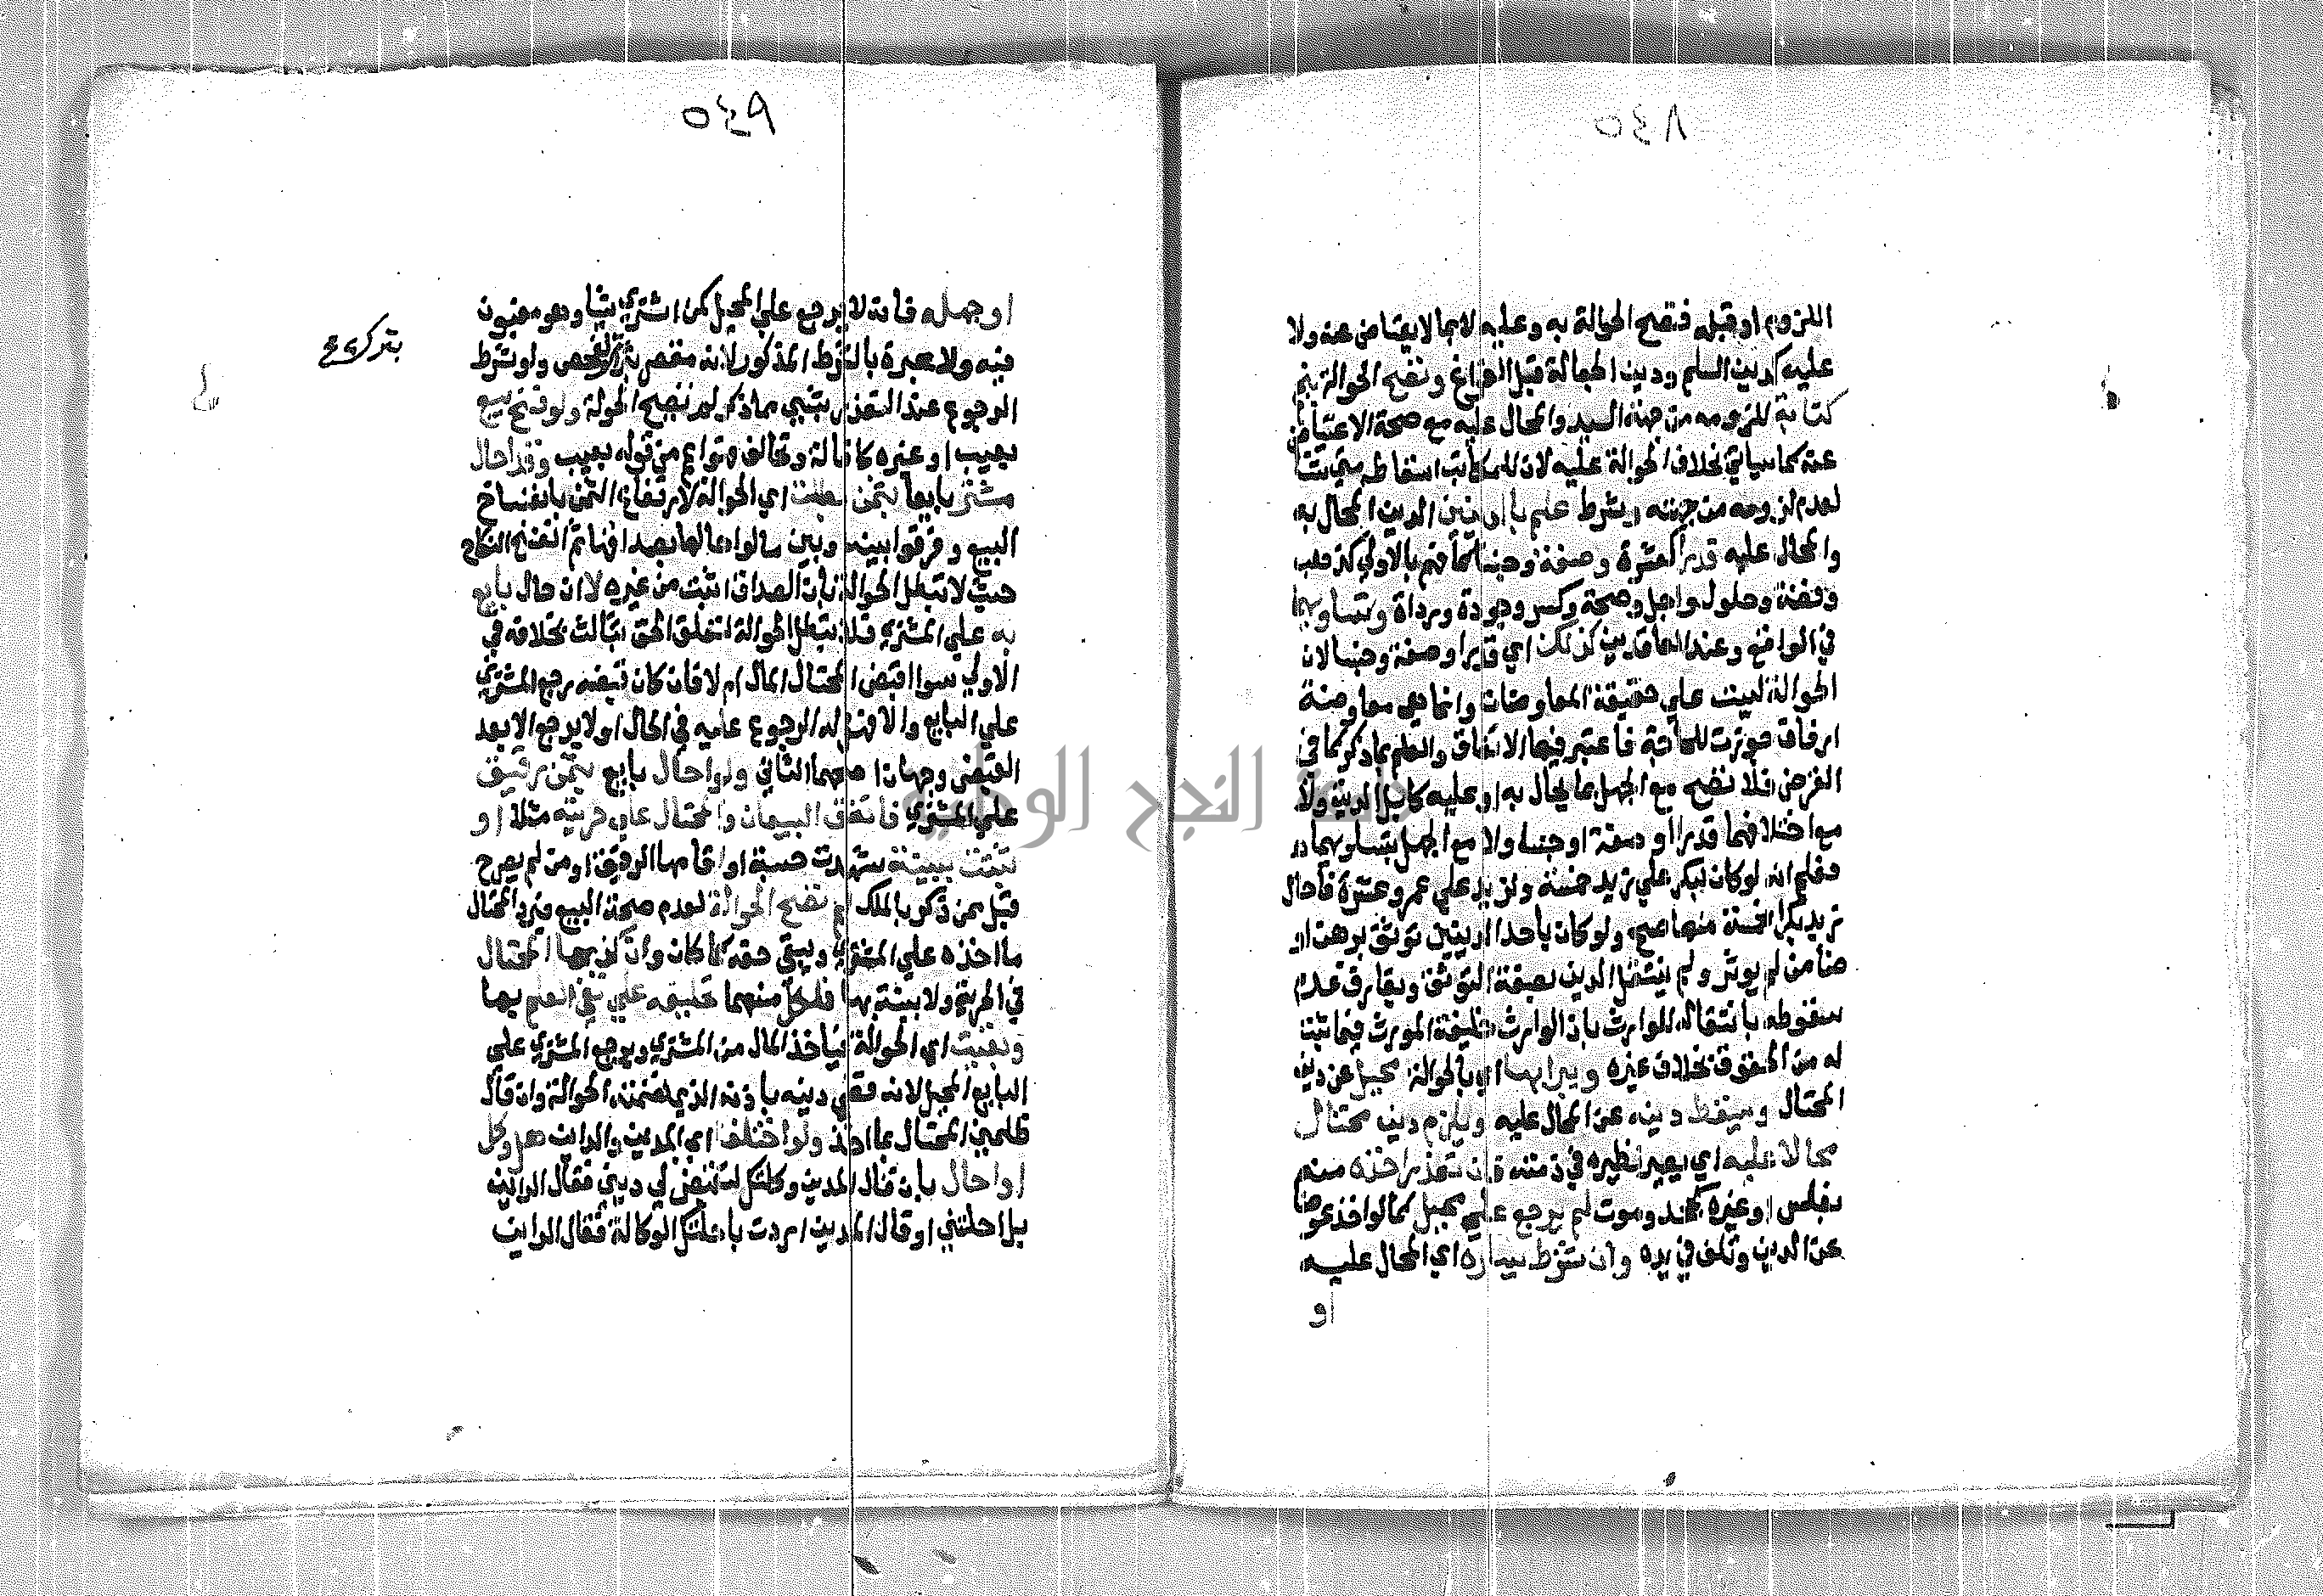 ٨٤٥
اللزوم او قبله فتصح الحوالة به وعليه لا بما لا يعتاض عنه ولا
عليه كدين السلم ودين الجعالة قبل الفراغ وتصح الحوالة بنجم
كتابة للزومه من جهة السيد والمحال عليه مع صحة الاعتياض
عنه كما سياتي بخلاف الحوالة عليه لان للمكاتب اسقاطه متي شا
لعدم لزومه من جهته ويشترط علم بالدينين الدين المحال به
والمحال عليه قدرا كعشرة وصفة وجنسا كما فهم بالاولي كذهب
وفضة وحلول واجل وصحة وكسر وجودة ورداة وتساويهما
في الواقع وعند العاقدين كذلك اي قدرا وصفة وجنسا لان
الحوالة ليست علي حقيقة المعاوضات وانما هي معاوضة
ارفاق جوزت للحاجة فاعتبر فيها الاتفاق والعلم بما ذكر كما في
القرض فلا تصح مع الجهل بما يحال به او عليه كابل الدية ولا
مع اختلافهما قدرا او صفة او جنسا ولا مع الجهل بتساويهما
فعلم انه لو كان لبكر علي زيد خمسة ولزيد علي عمرو عشرة فاحال
زيد بكرا بخمسة منها صح ولو كان باحد الدينين توثق برهن او
ضامن لم يوثر ولم ينتقل الدين بصفة التوثق ويفارق عدم
سقوطه بانتقاله للوارث بان الوارث خليفة المورث فيما ثبت
له من الحقوق بخلاف غيره ويبرا بها اي بالحوالة محيل عن دين
المحتال ويسقط دينه عن المحال عليه ويلزم دين محتال
محالا عليه اي يصير نظيره في ذمته فان تعذر اخذه منه
بفلس او غيره كجحد وموت لم يرجع علي محيل كما لو اخذ عوضا
عن الدين وتلف في يده وان شرط يساره اي المحال عليه
او
٩٤٥
او جهله فانه لا يرجع علي المحيل كمن اشتري شيا وهو مغبون
فيه ولا عبرة بالشرط المذكور لانه مقصر بترك الفحص ولو شرط
بترك صح
الرجوع عند التعذر بشي مما ذكر لم تصح الحوالة ولو فسخ بيع
بعيب او غيره كاقالة وتحالف هو اعم من قوله بعيب وقد احال
مشتر بايعا بثمن بطلت اي الحوالة لارتفاع الثمن بانفساخ
البيع وفرقوا بينه وبين ما لو احالها بصداقها ثم انفسخ النكاح
حيث لا تبطل الحوالة بان الصداق اثبت من غيره لا ان حال بايع
به علي المشتري فلا تبطل الحوالة لتعلق الحق بثالث بخلافه في
الاولي سوا اقبض المحتال المال ام لا فان كان قبضه رجع المشتري
علي البايع والا فهل له الرجوع عليه في الحال او لا يرجع الا بعد
القبض وجهان اصحهما الثاني ولو احال بايع بثمن رقيق
علي المشتري فاتفق البيعان والمحتال علي حريته مثلا او
ثبتت ببينة شهدت حسبة او اقامها الرقيق او من لم يصرح
قبل ممن ذكر بالملك لم تصح الحوالة لعدم صحة البيع فيرد المحتال
ما اخذه علي المشتري ويبقي حقه كما كان وان كذبهما المحتال
في الحرية ولا بينة بها فلكل منهما تحليفه علي نفي العلم بها
وبقيت اي الحوالة فياخذ المال من المشتري ويرجع المشتري علي
البايع المحيل لانه قضي دينه باذنه الذي تضمنته الحوالة وان قال
ظلمني المحتال بما اخذ ولو اختلفا اي المدين والداين هل وكل
او احال بان قال المدين وكلتك لتقبض لي ديني فقال الداين
بل احلتني او قال المدين اردت باحلتك الوكالة فقال الداين